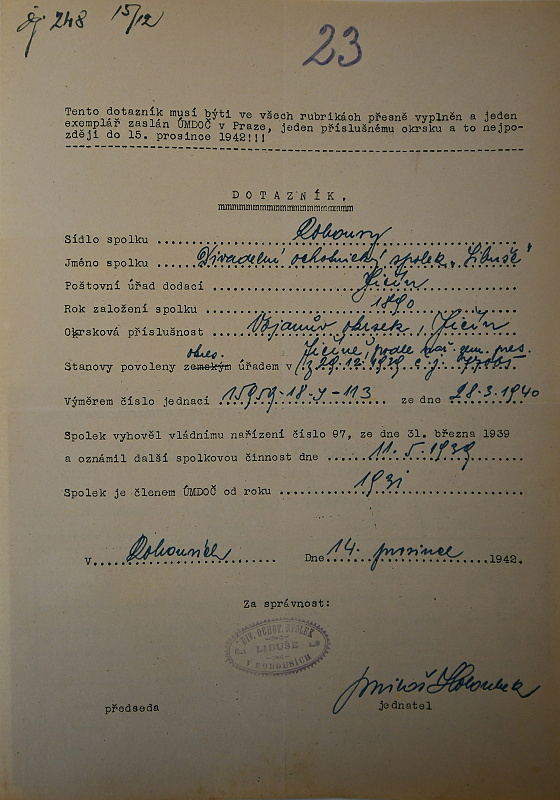 čj 248 15/12
23
Tento dotazník musí býti ve všech rubrikách přesně vyplněn a jeden
exemplář zaslán ÚMDOČ v Praze, jeden příslušnému okrsku a to nejpo-
zději do 15. prosince 1942!!!
DOTAZNÍK.
Sídlo spolku Robousy
Jméno spolku Divadelní ochotnický spolek „Libuše“
Poštovní úřad dodací Jičín
Rok založení spolku 1890
Okrsková příslušnost okrsek, Jičín
okres. Jičíně podle nař. zem. pres.
Stanovy povoleny zemským úřadem v (z 29.12.1939 č.j.
Výměrem číslo jednací ze dne 28.3.1940
Spolek vyhověl vládnímu nařízení číslo 97, ze dne 31. března 1939
a oznámil další spolkovou činnost dne 11.5.1939
Spolek je členem ÚMDOČ od roku 1931
V Robousích Dne 14. prosince 1942.
Za správnost:
DIV. OCHOT. SPOLEK
LIBUŠE
V ROBOUSÍCH
předseda
jednatel